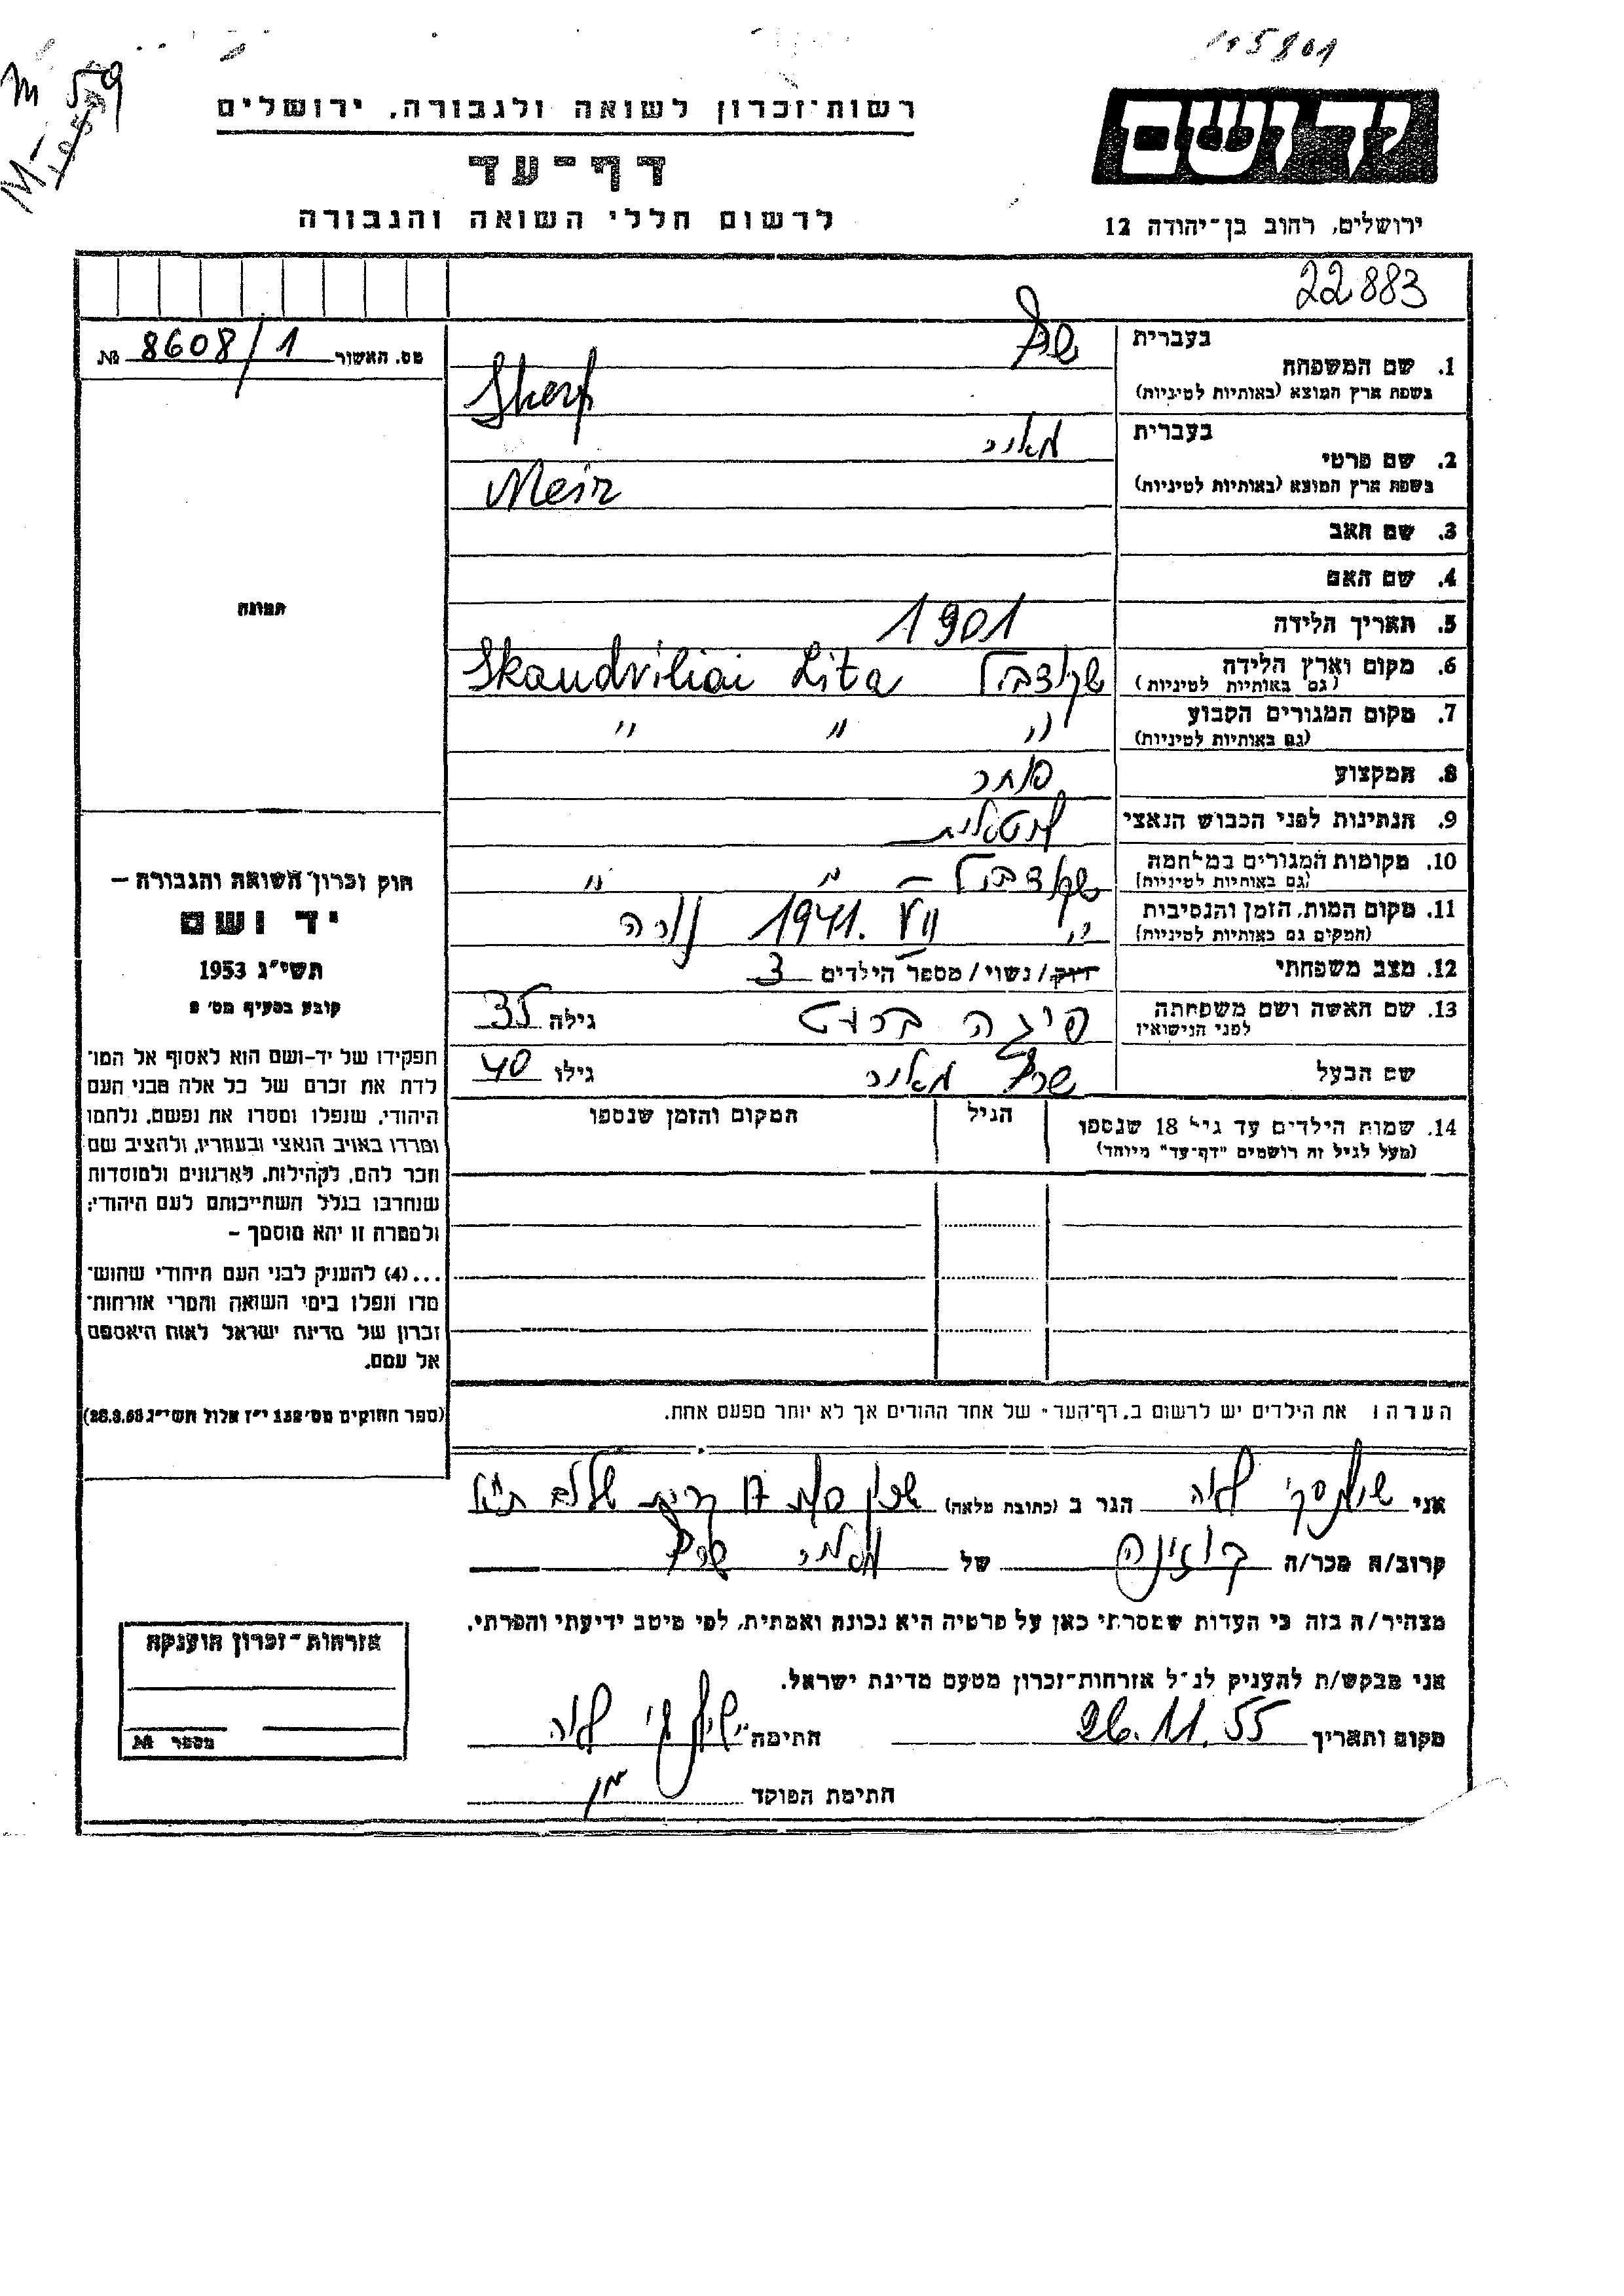 115801
רשות־זכרון לשואה ולגבורה, ירושלים
יד ושם
דף־עד
לרשום חללי השואה והגבורה
ירושלים, רחוב בן־יהודה 12
22883
מס. האשור 8608/1 №
בעברית שרף
1. שם המשפחה
בשפת ארץ המוצא (באותיות לטיניות) Skerf
בעברית מאיר
2. שם פרטי
בשפת ארץ המוצא (באותיות לטיניות) Meir
3. שם האב
4. שם האם
תמונה
5. תאריך הלידה 1901
6. מקום וארץ הלידה Skaudviliai Lita
(גם באותיות לטיניות)
7. מקום המגורים הקבוע " " "
(גם באותיות לטיניות)
8. המקצוע סוחר
9. הנתינות לפני הכבוש הנאצי ליטאית
10. מקומות המגורים במלחמה " "
(גם באותיות לטיניות)
11. מקום המות, הזמן והנסיבות " VII 1941.
(המקום גם באותיות לטיניות)
12. מצב משפחתי רווק/נשוי/מספר הילדים 3
13. שם האשה ושם משפחתה פיגה גילה 35
לפני הנישואין
שם הבעל שרף מאיר גילו 40
14. שמות הילדים עד גיל 18 שנספו הגיל המקום והזמן שנספו
(מעל לגיל זה רושמים "דף־עד" מיוחד)
הערה: את הילדים יש לרשום ב"דף־העד" של אחד ההורים אך לא יותר מפעם אחת.
חוק זכרון השואה והגבורה –
יד ושם
תשי"ג 1953
קובע בסעיף מס' 2
תפקידו של יד־ושם הוא לאסוף אל המו־
לדת את זכרם של כל אלה מבני העם
היהודי, שנפלו ומסרו את נפשם, נלחמו
ומרדו באויב הנאצי ובעוזריו, ולהציב שם
וזכר להם, לקהילות, לארגונים ולמוסדות
שנחרבו בגלל השתייכותם לעם היהודי;
ולמטרה זו יהא מוסמך –
...(4) להעניק לבני העם היהודי שהוש־
מדו ונפלו בימי השואה והמרי אזרחות־
זכרון של מדינת ישראל לאות היאספם
אל עמם.
(ספר החוקים מס' 132 י"ז אלול תשי"ג 28.8.53)
אני לאה הגר ב (כתובת מלאה)
קרוב/ה מכר/ה של מאיר שרף
מצהיר/ה בזה כי העדות שמסרתי כאן על פרטיה היא נכונה ואמתית, לפי מיטב ידיעתי והכרתי.
אני מבקש/ת להעניק לנ"ל אזרחות־זכרון מטעם מדינת ישראל.
מקום ותאריך 26.11.55 חתימה לאה
חתימת הפוקד
אזרחות־זכרון הוענקה
מספר №